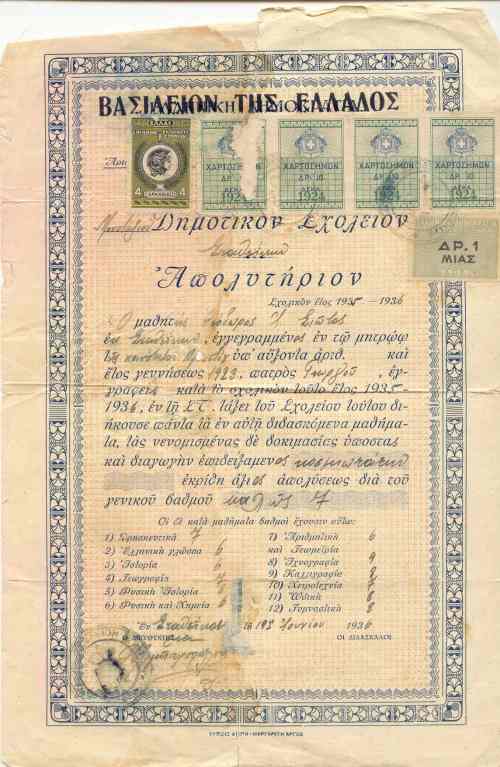 ΒΑΣΙΛΕΙΟΝ ΤΗΣ ΕΛΛΑΔΟΣ
Ἀρι
ΕΛΛΑΣ
4 4
ΧΑΡΤΟΣΗΜΟΝ ΧΑΡΤΟΣΗΜΟΝ ΧΑΡΤΟΣΗΜΟΝ ΧΑΡΤΟΣΗΜΟΝ
ΔΡ. ΔΡ. ΔΡ. ΔΡ.
1924 1924 1924 1924
Δημοτικὸν Σχολεῖον
ΔΡ. 1
ΜΙΑΣ
Ἀπολυτήριον
Σχολικὸν ἔτος 1935 — 1936
Ὁ μαθητὴς
ἐκ ἐγγεγραμμένος ἐν τῷ μητρώῳ
τῆς ὑπ' αὔξοντα ἀριθ. καὶ
ἔτος γεννήσεως 1923, πατρὸς Γεωργίου, ἐγ-
γραφεὶς κατὰ τὸ σχολικὸν τοῦτο ἔτος 1935-
1936, ἐν τῇ ΣΤ. τάξει τοῦ Σχολείου τούτου δι-
ήκουσε πάντα τὰ ἐν αὐτῇ διδασκόμενα μαθήμα-
τα, τὰς νενομισμένας δὲ δοκιμασίας ὑποστὰς
καὶ διαγωγὴν ἐπιδειξάμενος κοσμιωτάτην
ἐκρίθη ἄξιος ἀπολύσεως διὰ τοῦ
γενικοῦ βαθμοῦ καλῶς 7
Οἱ δὲ κατὰ μαθήματα βαθμοὶ ἔχουσιν οὕτω:
1) Θρησκευτικὰ 7
2) Ἑλληνικὴ γλῶσσα 6
3) Ἱστορία 6
4) Γεωγραφία 7
5) Φυσικὴ Ἱστορία 6
6) Φυσικὴ καὶ Χημεία 6
7) Ἀριθμητικὴ 6
καὶ Γεωμετρία
8) Ἰχνογραφία 9
9) Καλλιγραφία 8
10) Χειροτεχνία
11) Ὠδικὴ 6
12) Γυμναστικὴ 8
Ἐν τῇ 19ῃ Ἰουνίου 1936
Ο ΔΙΕΥΘΥΝΤΗΣ ΟΙ ΔΙΔΑΣΚΑΛΟΙ